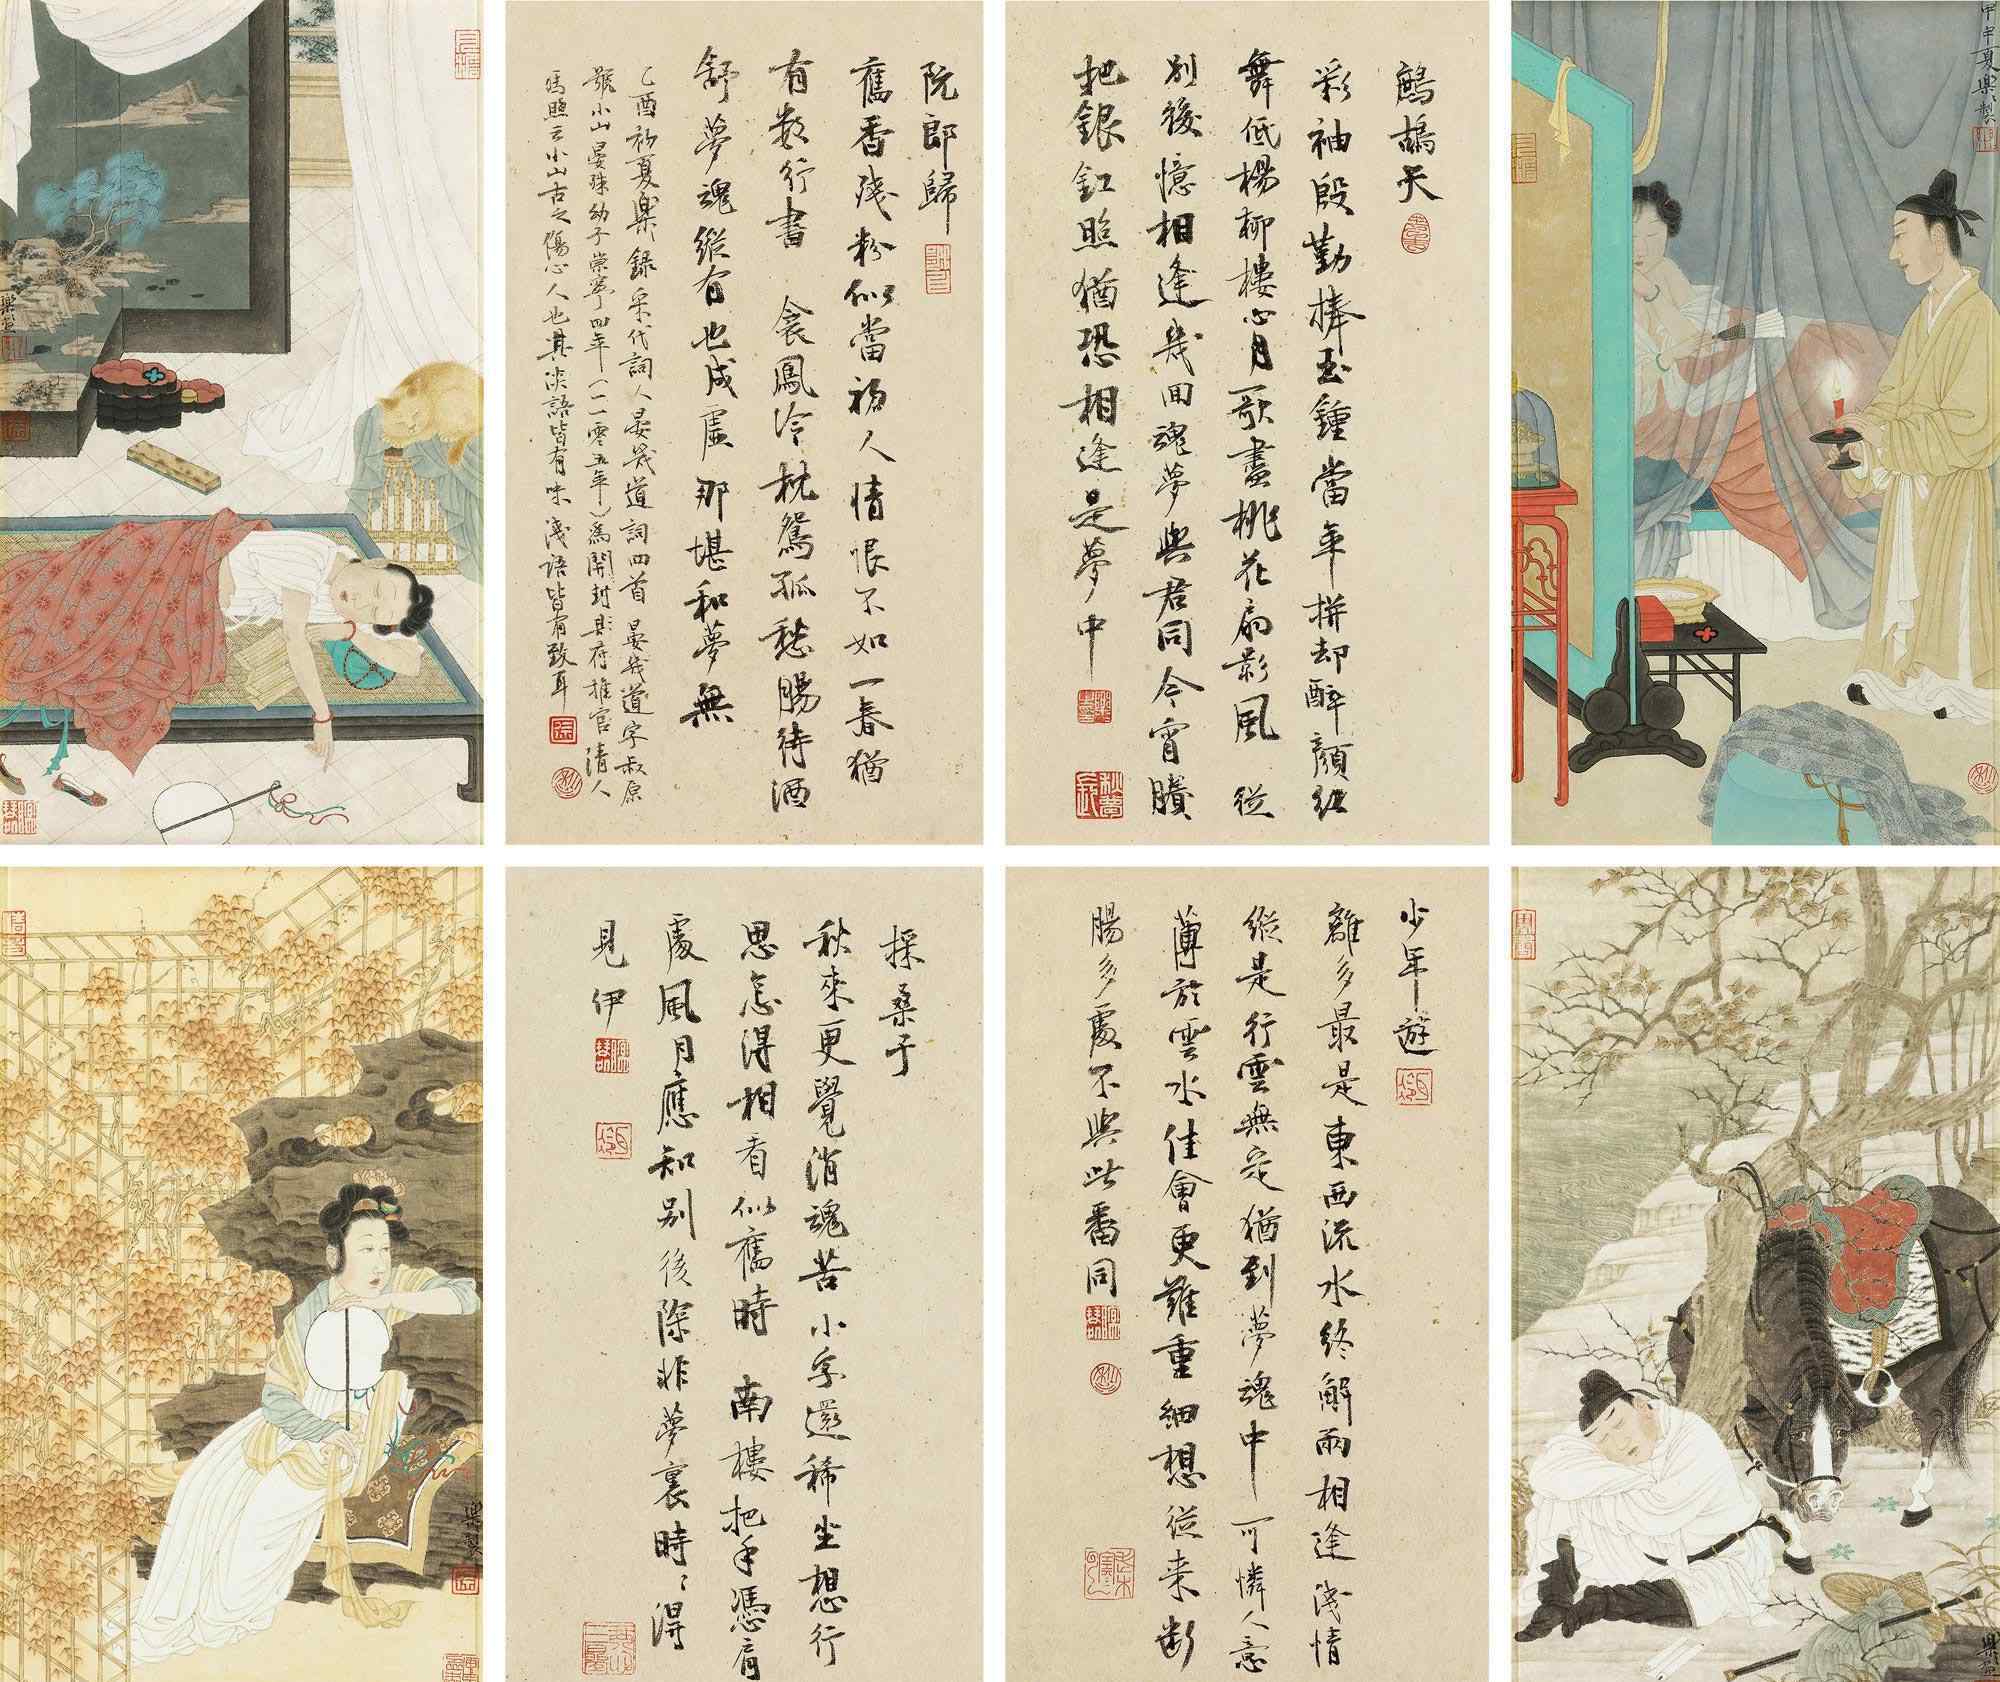 甲申夏樂樂製
鷓鴣天
彩袖殷勤捧玉鍾當年拼却醉顏紅
舞低楊柳樓心月歌盡桃花扇影風 從
別後憶相逢幾回魂夢與君同今宵賸
把銀釭照猶恐相逢是夢中
阮郎歸
舊香殘粉似當初人情恨不如一春猶
有數行書 衾鳳冷枕鴛孤愁腸待酒
舒夢魂縱有也成虛那堪和夢無
乙酉初夏樂樂錄宋代詞人晏幾道詞四首 晏幾道字叔原
號小山晏殊幼子崇寧四年(一一零五年)爲開封府推官清人
馮煦云小山古之傷心人也其淡語皆有味淺語皆有致耳
少年遊
離多最是東西流水終解兩相逢淺情
縱是行雲無定猶到夢魂中 可憐人意
薄於雲水佳會更難重細想從來斷
腸多處不與此番同
採桑子
秋來更覺消魂苦小字還稀坐想行
思怎得相看似舊時 南樓把手憑肩
處風月應知別後除非夢裏時時得
見伊
樂製